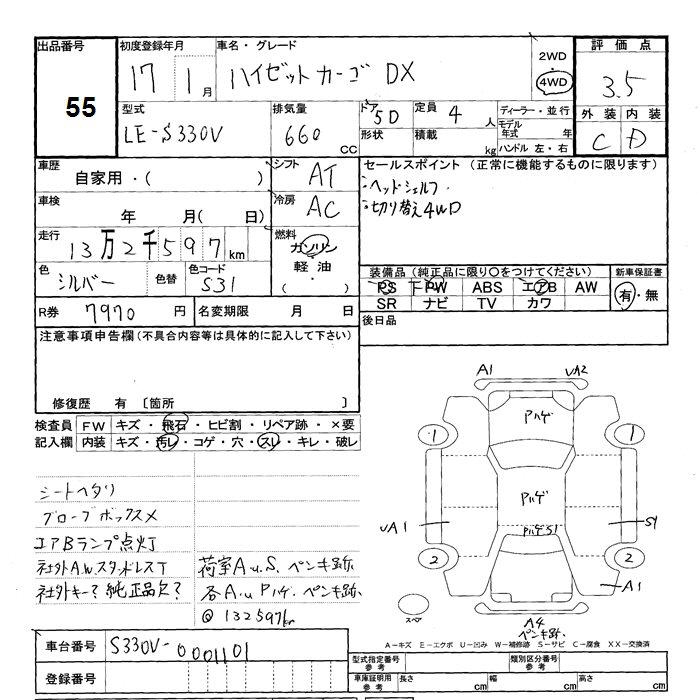 出品番号
55
初度登録年月
17 1月
車名・グレード
ハイゼットカーゴ DX
2WD
4WD
評価点
3.5
外装 内装
C D
型式
LE-S330V
排気量
660 CC
ドア 5D
形状
定員 4 人
積載 kg
ディーラー・並行
モデル年式 年
ハンドル 左・右
車歴
自家用・( )
シフト AT
車検
年 月( 日)
冷房 AC
走行
13万2千597km
燃料
ガソリン
軽油
・( )
色
シルバー
色替
色コード
S31
R券 7970 円
名変期限 月 日
セールスポイント (正常に機能するものに限ります)
・ヘッドシェルフ
・切り替え4WD
装備品 (純正品に限り○をつけてください)
PS PW ABS エアB AW
SR ナビ TV カワ
新車保証書
有・無
後日品
注意事項申告欄(不具合内容等は具体的に記入して下さい)
修復歴 有 〔箇所 〕
検査員記入欄
FW キズ・飛石・ヒビ割・リペア跡・×要
内装 キズ・汚レ・コゲ・穴・スレ・キレ・破レ
シートヘタリ
グローブボックス×
エアBランプ点灯
社外A.W.スタッドレスT
社外キー?純正品欠?
荷室A.u.S.ペンキ跡
各A.u Pハゲ.ペンキ跡.
@ 132597km
A1
UA2
Pハゲ
1
1
Pハゲ
UA1
S1
PハゲS1
2
2
A1
スペア
A4
ペンキ跡.
A-キズ E-エクボ U-凹み W-補修跡 S-サビ C-腐食 XX-交換済
車台番号 S330V-0001101
登録番号
型式指定番号 参考
類別区分番号 参考
車庫証明用 参考
長さ cm
幅 cm
高さ cm